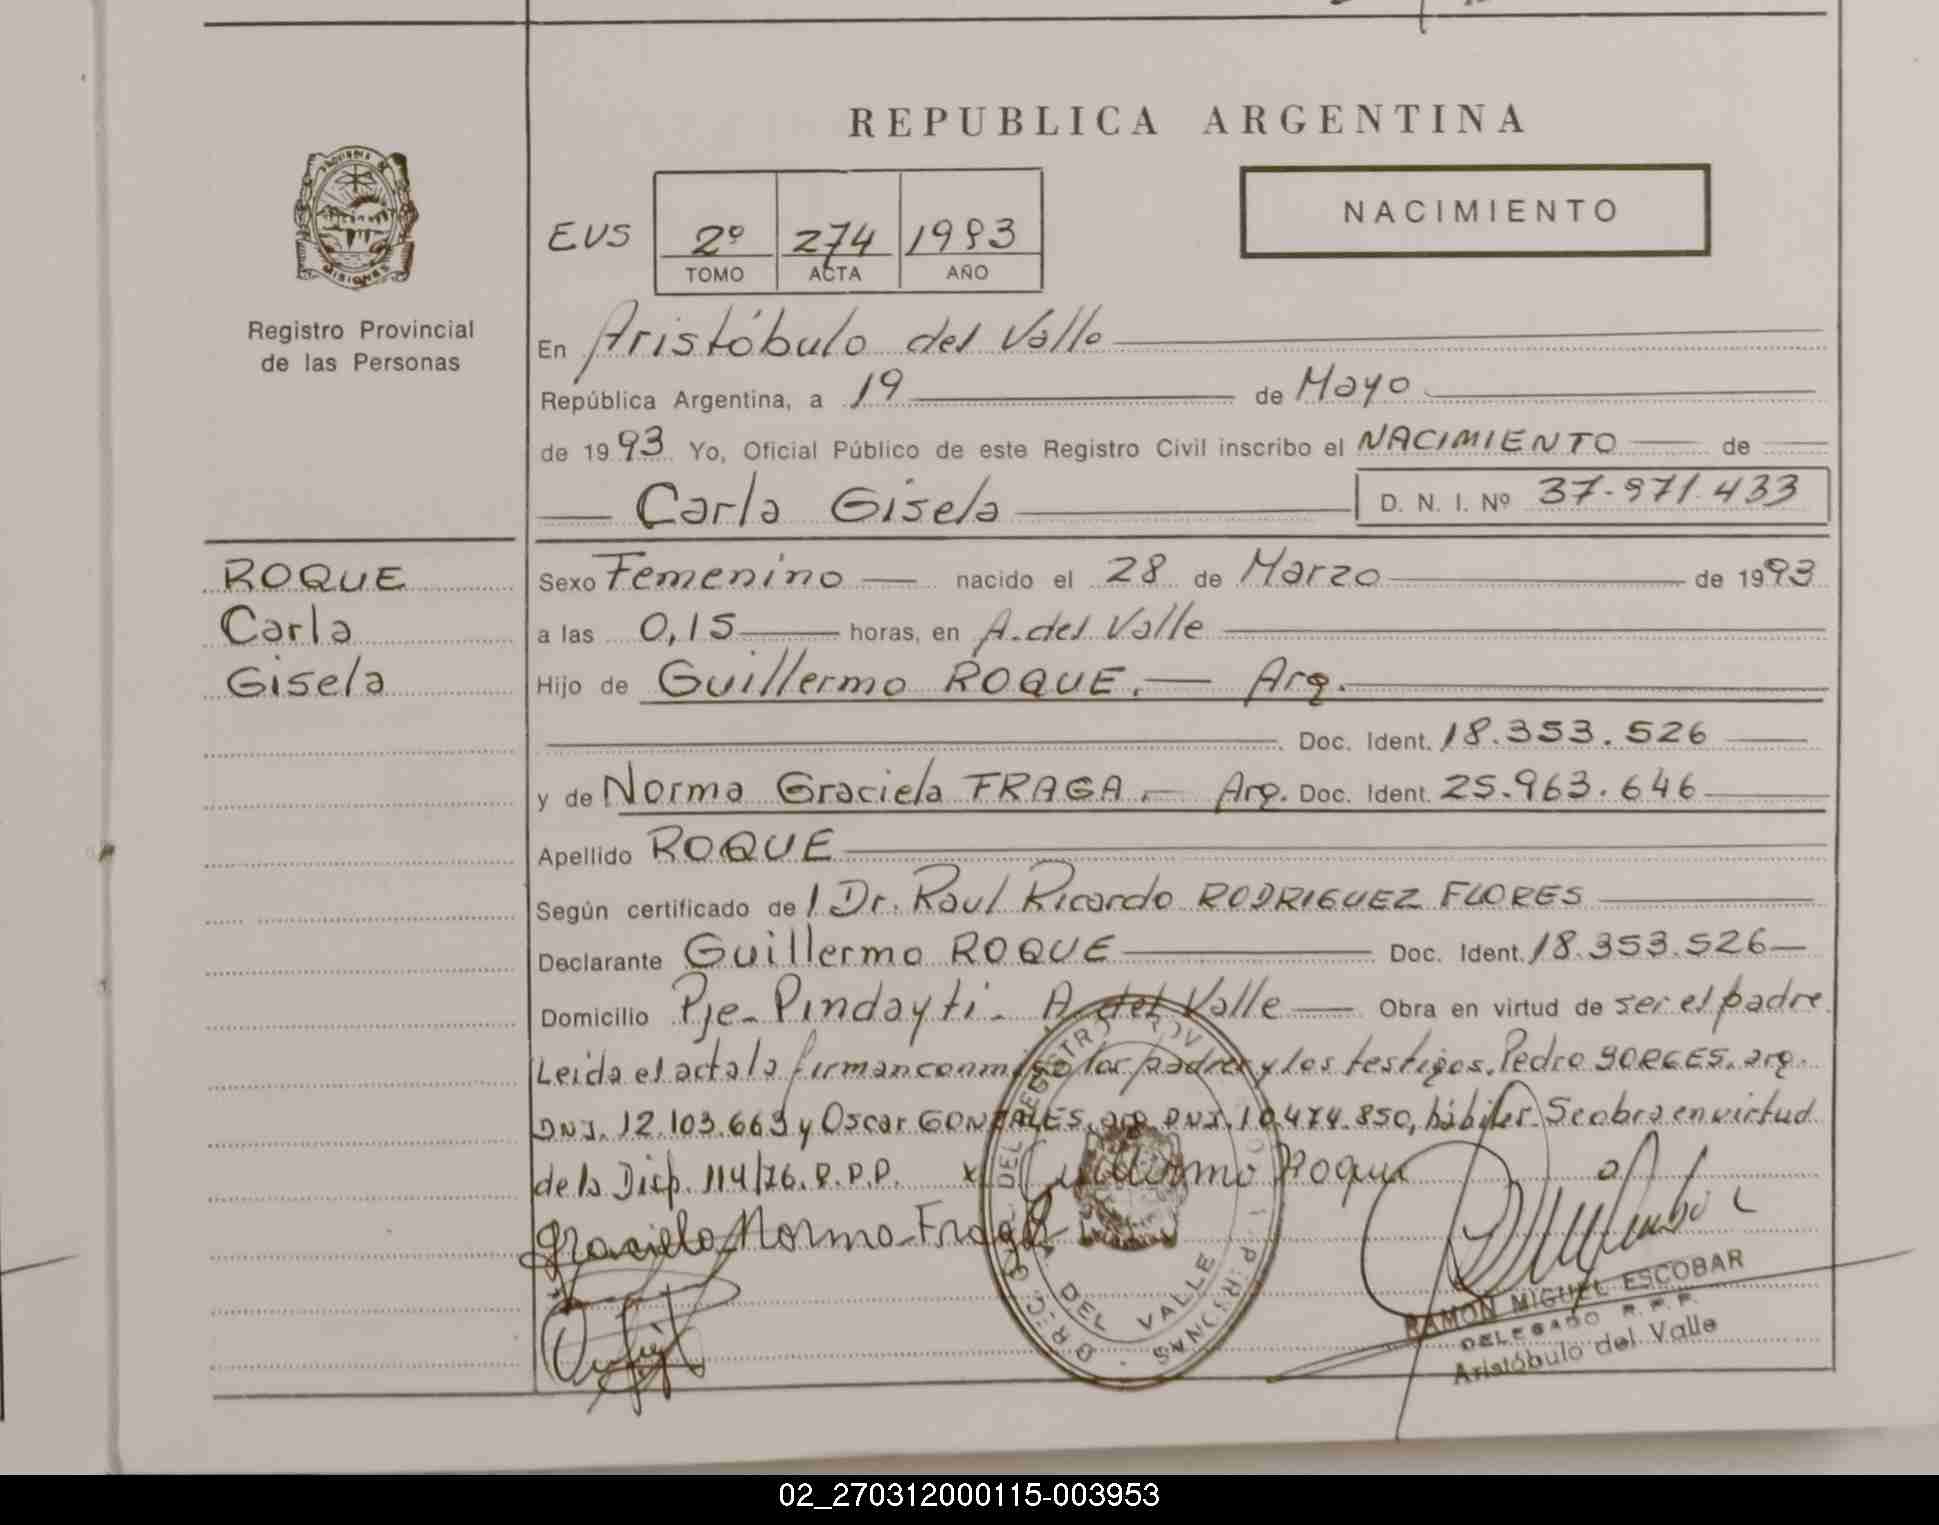 REPUBLICA ARGENTINA
NACIMIENTO
EUS 2º 274 1993
TOMO ACTA AÑO
Registro Provincial
de las Personas
En Aristóbulo del Valle
República Argentina, a 19 de Mayo
de 1993 Yo, Oficial Público de este Registro Civil inscribo el NACIMIENTO de
Carla Gisela D. N. I. Nº 37.971.433
ROQUE
Carla
Gisela
Sexo Femenino nacido el 28 de Marzo de 1993
a las 0,15 horas, en A. del Valle
Hijo de Guillermo ROQUE. Arg.
Doc. Ident. 18.353.526
y de Norma Graciela FRAGA. Arg. Doc. Ident. 25.963.646
Apellido ROQUE
Según certificado del Dr. Raul Ricardo RODRIGUEZ FLORES
Declarante Guillermo ROQUE Doc. Ident. 18.353.526
Domicilio Pje. Pindayti. A. del Valle Obra en virtud de ser el padre
Leida el acta la firman conmigo los padres y los testigos. Pedro BORGES, arg.
DNI. 12.103.663 y Oscar GONZALES, arg. DNI. 10.474.850, hábiles. Se obra en virtud
de la Disp. 114/76. R.P.P. x Guillermo Roque
Graciela Norma Fraga
DEL VALLE
RAMON MIGUEL ESCOBAR
DELEGADO R. P. P.
Aristóbulo del Valle
02_270312000115-003953